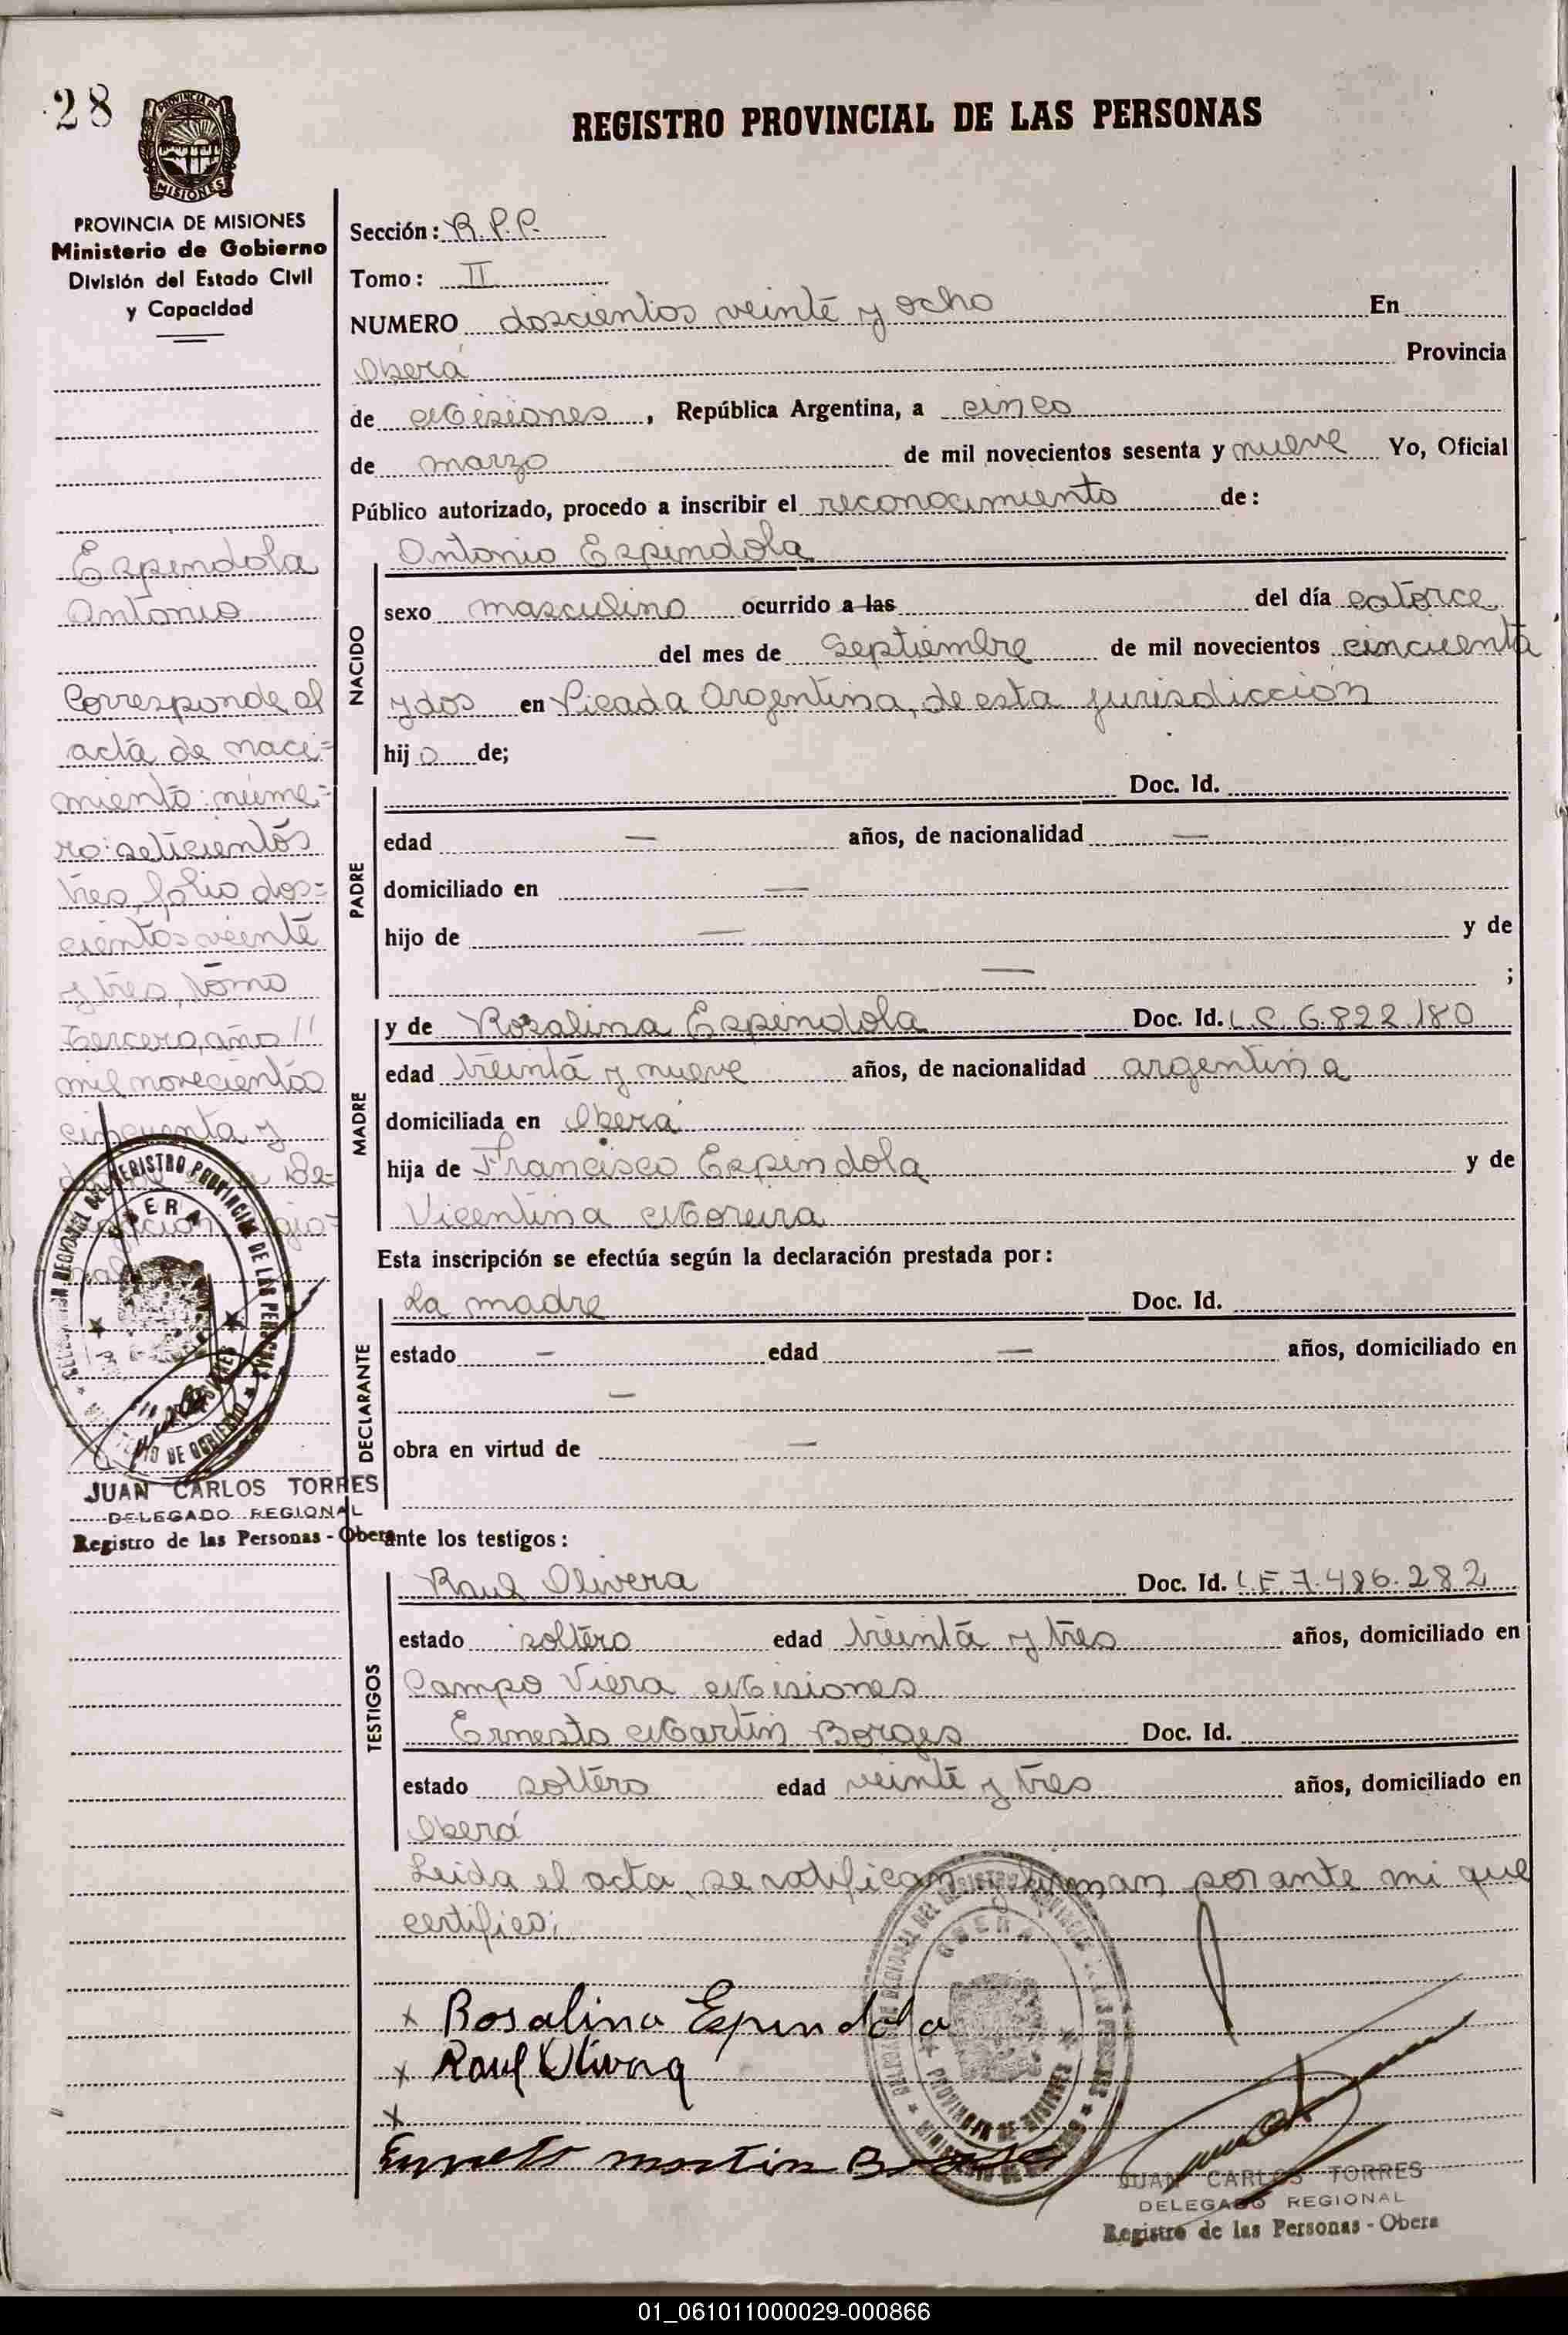 28
PROVINCIA DE
MISIONES
REGISTRO PROVINCIAL DE LAS PERSONAS
PROVINCIA DE MISIONES
Ministerio de Gobierno
División del Estado Civil
y Capacidad
Espindola
Antonio
Corresponde al
acta de naci=
miento: núme=
ro: seticientos
tres, folio dos=
cientos veinte
y tres, tomo
Tercero, año
mil novecientos
cincuenta y
DELEGACION REGIONAL DEL REGISTRO PROVINCIAL DE LAS PERSONAS
OBERA
JUAN CARLOS TORRES
DELEGADO REGIONAL
Registro de las Personas - Obera
Sección: R.P.P.
Tomo: II
NUMERO doscientos veinte y ocho En
Oberá Provincia
de Misiones, República Argentina, a cinco
de marzo de mil novecientos sesenta y nueve Yo, Oficial
Público autorizado, procedo a inscribir el reconocimiento de:
NACIDO
Antonio Espindola
sexo masculino ocurrido a las del día catorce
del mes de Septiembre de mil novecientos cincuenta
y dos en Picada Argentina, de esta jurisdiccion
hij o de;
PADRE
Doc. Id.
edad — años, de nacionalidad —
domiciliado en —
hijo de — y de
— ;
MADRE
y de Rosalina Espindola Doc. Id. L.C. 6.822.180
edad treinta y nueve años, de nacionalidad argentina
domiciliada en Oberá
hija de Francisco Espindola y de
Vicentina Moreira
Esta inscripción se efectúa según la declaración prestada por:
DECLARANTE
La madre Doc. Id.
estado — edad — años, domiciliado en
—
obra en virtud de —
ante los testigos:
TESTIGOS
Raul Olivera Doc. Id. L.E 7.486.282
estado soltero edad treinta y tres años, domiciliado en
Campo Viera Misiones
Ernesto Martin Borges Doc. Id.
estado soltero edad veinte y tres años, domiciliado en
Oberá
Leida el acta, se ratifican firman por ante mi que
certifico;
x Rosalina Espindola
x Raul Olivera
x
Ernesto martin Borges
OBERA
PROVINCIA DE MISIONES
JUAN CARLOS TORRES
DELEGADO REGIONAL
Registro de las Personas - Obera
01_061011000029-000866